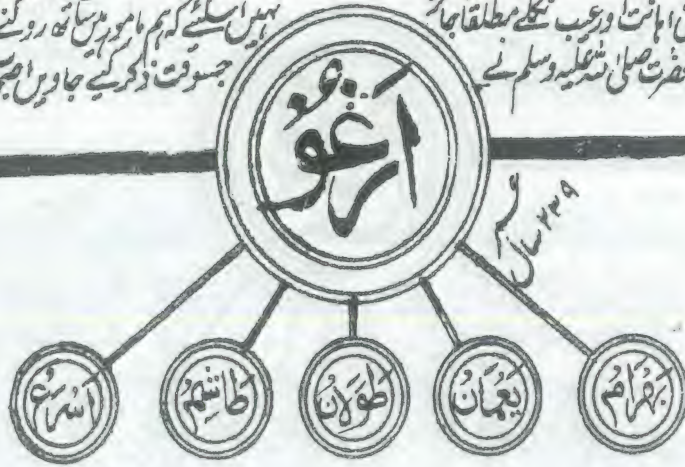 اہانت اور عیب نکلے مطلقا جا
حضرت صلی اللہ علیہ وسلم نے
نہیں اسلئے کہ ہم مامور ہیں ساتھ روکنے
جسوقت ذکر کیے جاویں
ارغو
۲۳۹ سال
بهرام
يعمان
طولان
طاشهم
اسرع